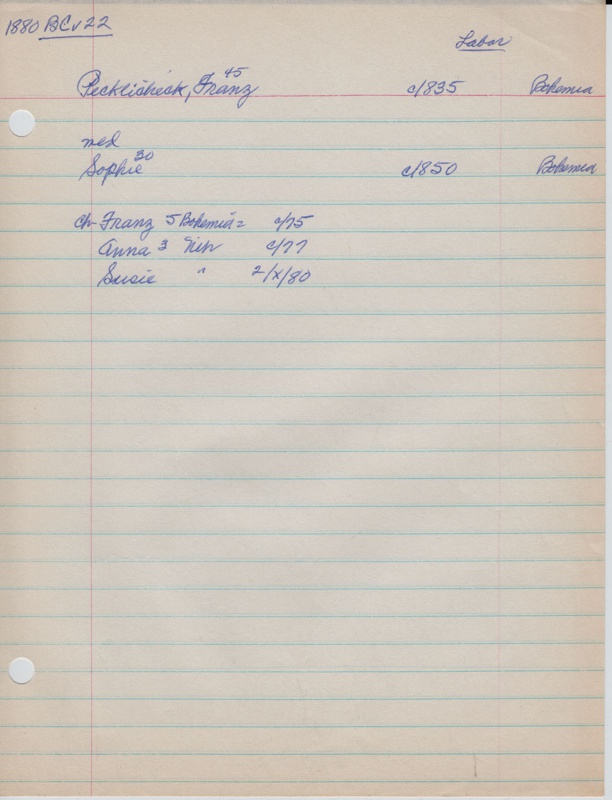 1880 BCv22
Labor
Pecklicheck, Franz 45 c/1835 Bohemia
med
Sophie 30 c/1850 Bohemia
ch Franz 5 Bohemia = c/75
Anna 3 c/77
Susie " 2/x/80